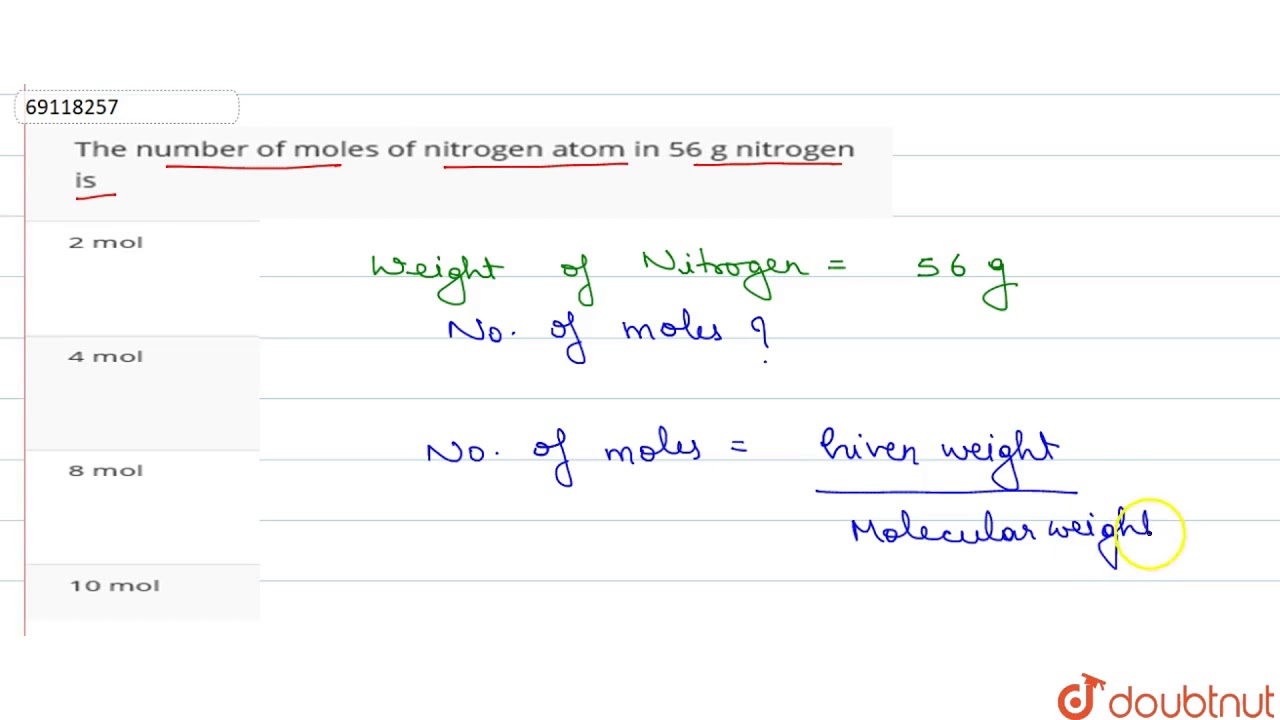 69118257
The number of moles of nitrogen atom in 56 g nitrogen
is
2 mol
Weight of Nitrogen = 56 g
No. of moles ?
4 mol
No. of moles = Given weight
8 mol
Molecular weight
10 mol
doubtnut